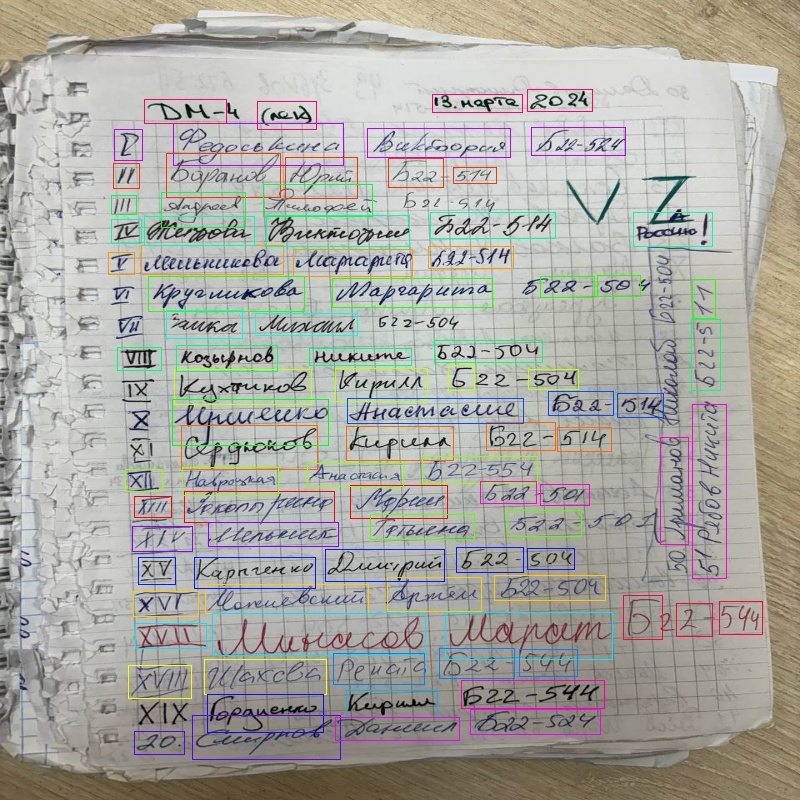 ДМ-4 (лек) 13. марта 2024
I Федоськина Виктория Б22-524
II Баранов Юрий Б22-514
III Андреев Тимофей Б22-514
IV Петрова Виктория Б22-514
V Мельникова Маргарита Б22-514
V Z
Zа Россию!
VI Кругликова Маргарита Б22-504
VII Заика Михаил Б22-504
VIII Козырнов Никита Б22-504
IX Кухтиков Кирилл Б22-504
X Анастасия Б22-514
XI Сердюков Кирилл Б22-514
XII Навроцкая Анастасия Б22-554
XIII Мария Б22-501
XIV Мельник Татьяна Б22-503
XV Карпченко Дмитрий Б22-504
XVI Можиевский Артём Б22-504
XVII Минасов Марат Б22-544
XVIII Шахова Рената Б22-544
XIX Гордиенко Кирилл Б22-544
20. Смирнов Даниил Б22-524
50 Николай Б22-504
51 Рябов Никита Б22-511